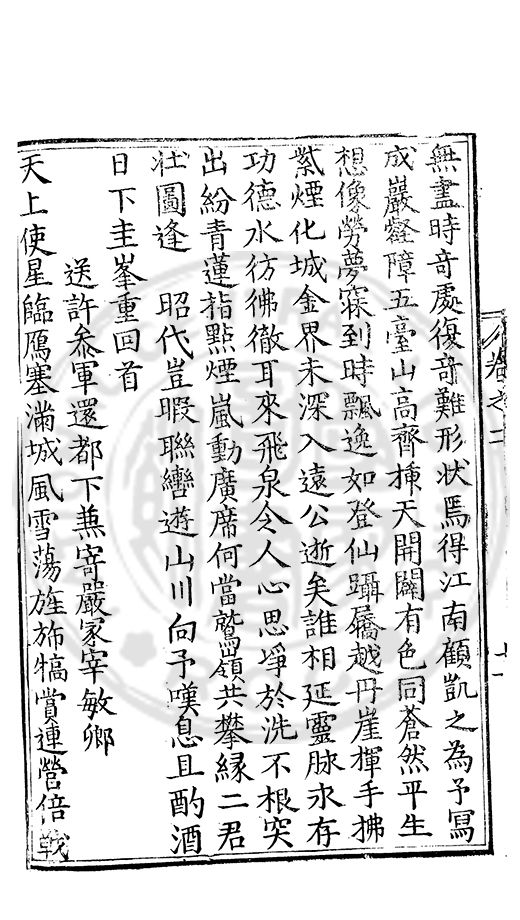 無盡時奇處復奇難形狀焉得江南顧凱之為予冩
成巖壑障五臺山高齊揷天開闢有色同蒼然平生
想像勞夢寐到時飄逸如登仙躡屩越丹崖揮手拂
紫煙化城金界未深入遠公逝矣誰相延靈脉永存
功德水彷彿徹耳來飛泉令人心思埩於洗不根突
出紛青蓮指點煙嵐動廣席何當鷲嶺共攀緣二君
壯圖逢　昭代豈暇聯轡遊山川向予嘆息且酌酒
日下圭峯重回首
送許叅軍還都下兼寄嚴冢宰敏卿
天上使星臨鴈塞滿城風雪蕩旌旆犒賞連營倍戰
卷之二